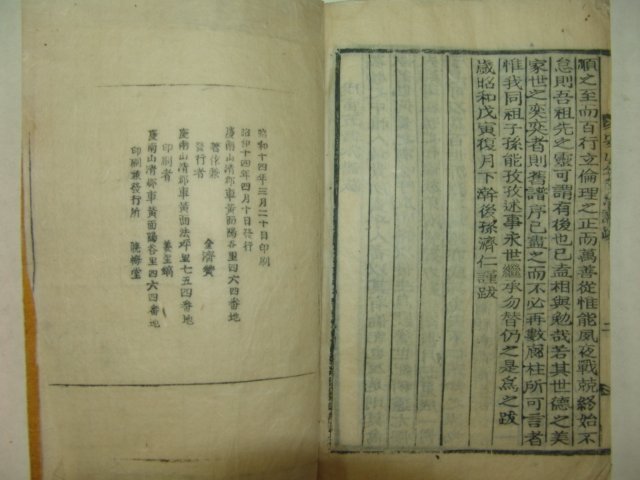 順之至而百行立倫理之正而萬善從惟能夙夜戰兢終始不
怠則吾祖先之靈可謂有後也已盍相與勉哉若其世德之美
家世之奕奕者則舊譜序已盡之而不必再數廊柱所可言者
惟我同祖子孫能孜孜述事永世繼承勿替仍之是爲之跋
歲昭和戊寅復月下澣後孫濟仁謹跋
二
昭和十四年三月二十日印刷
昭和十四年四月十日發行
慶南山清郡車黃面陽谷里四六四番地
著作兼
發行者 金濟
慶南山清郡車黃面法坪里七五四番地
印刷者
慶南山清郡車黃面陽谷里四六四番地
印刷兼發行所 晩梅堂